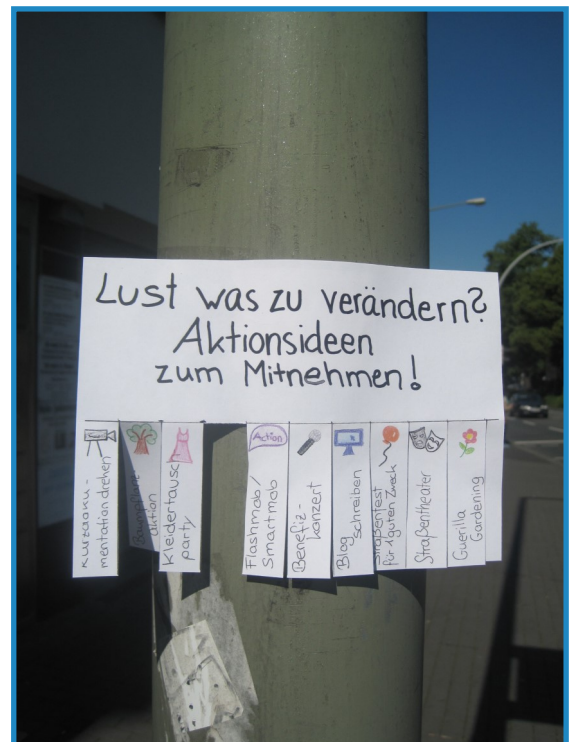 Lust was zu verändern?
Aktionsideen
zum Mitnehmen!
Kurzdoku-
mentation drehen
Baumpflanz-
aktion
Kleidertausch
party
Action
Flashmob/
Smartmob
Benefiz-
konzert
Blog
schreiben
Straßenfest
für 'guten Zweck
Straßentheater
Guerilla
Gardening